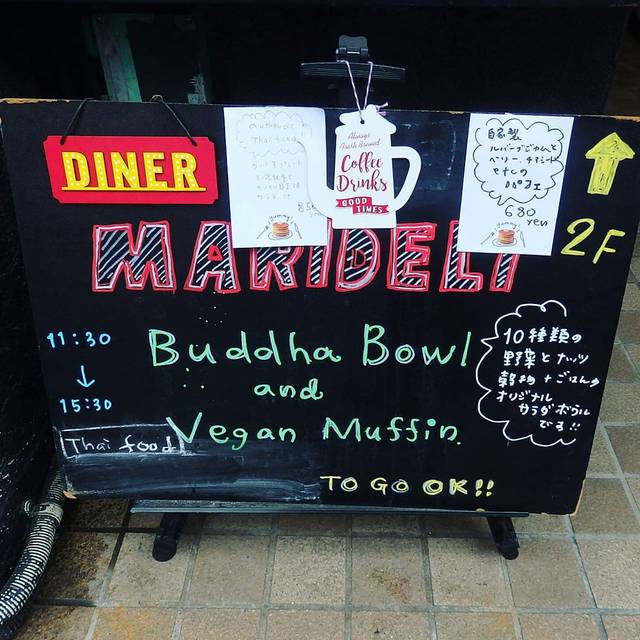 DINER
authentic
Thai food
Always
Fresh Brewed
Coffee
Drinks
GOOD
TIMES
自家製
ルバーブジャムと
ベリー、チアシード
パフェ
680
yen
2F
MARIDELI
11:30
↓
15:30
Buddha Bowl
and
Vegan Muffin
10種類の
野菜とナッツ
穀物+ごはんの
オリジナル
サラダボウル
です!!
Thai food
TO GO OK!!